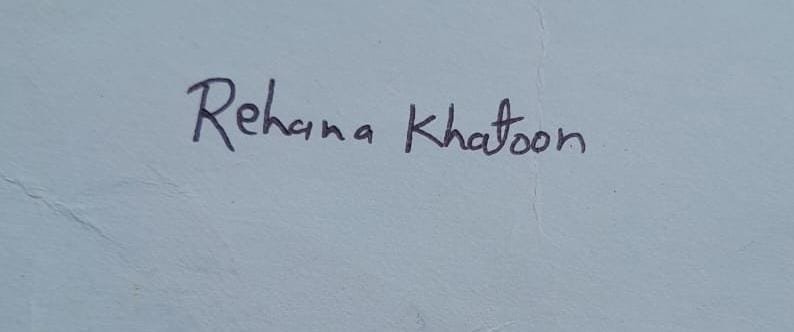 Rehana Khatoon